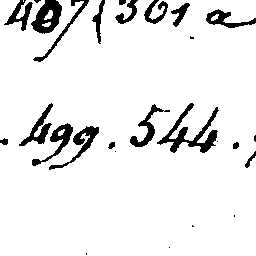 407{301 a
. 499 . 544 .